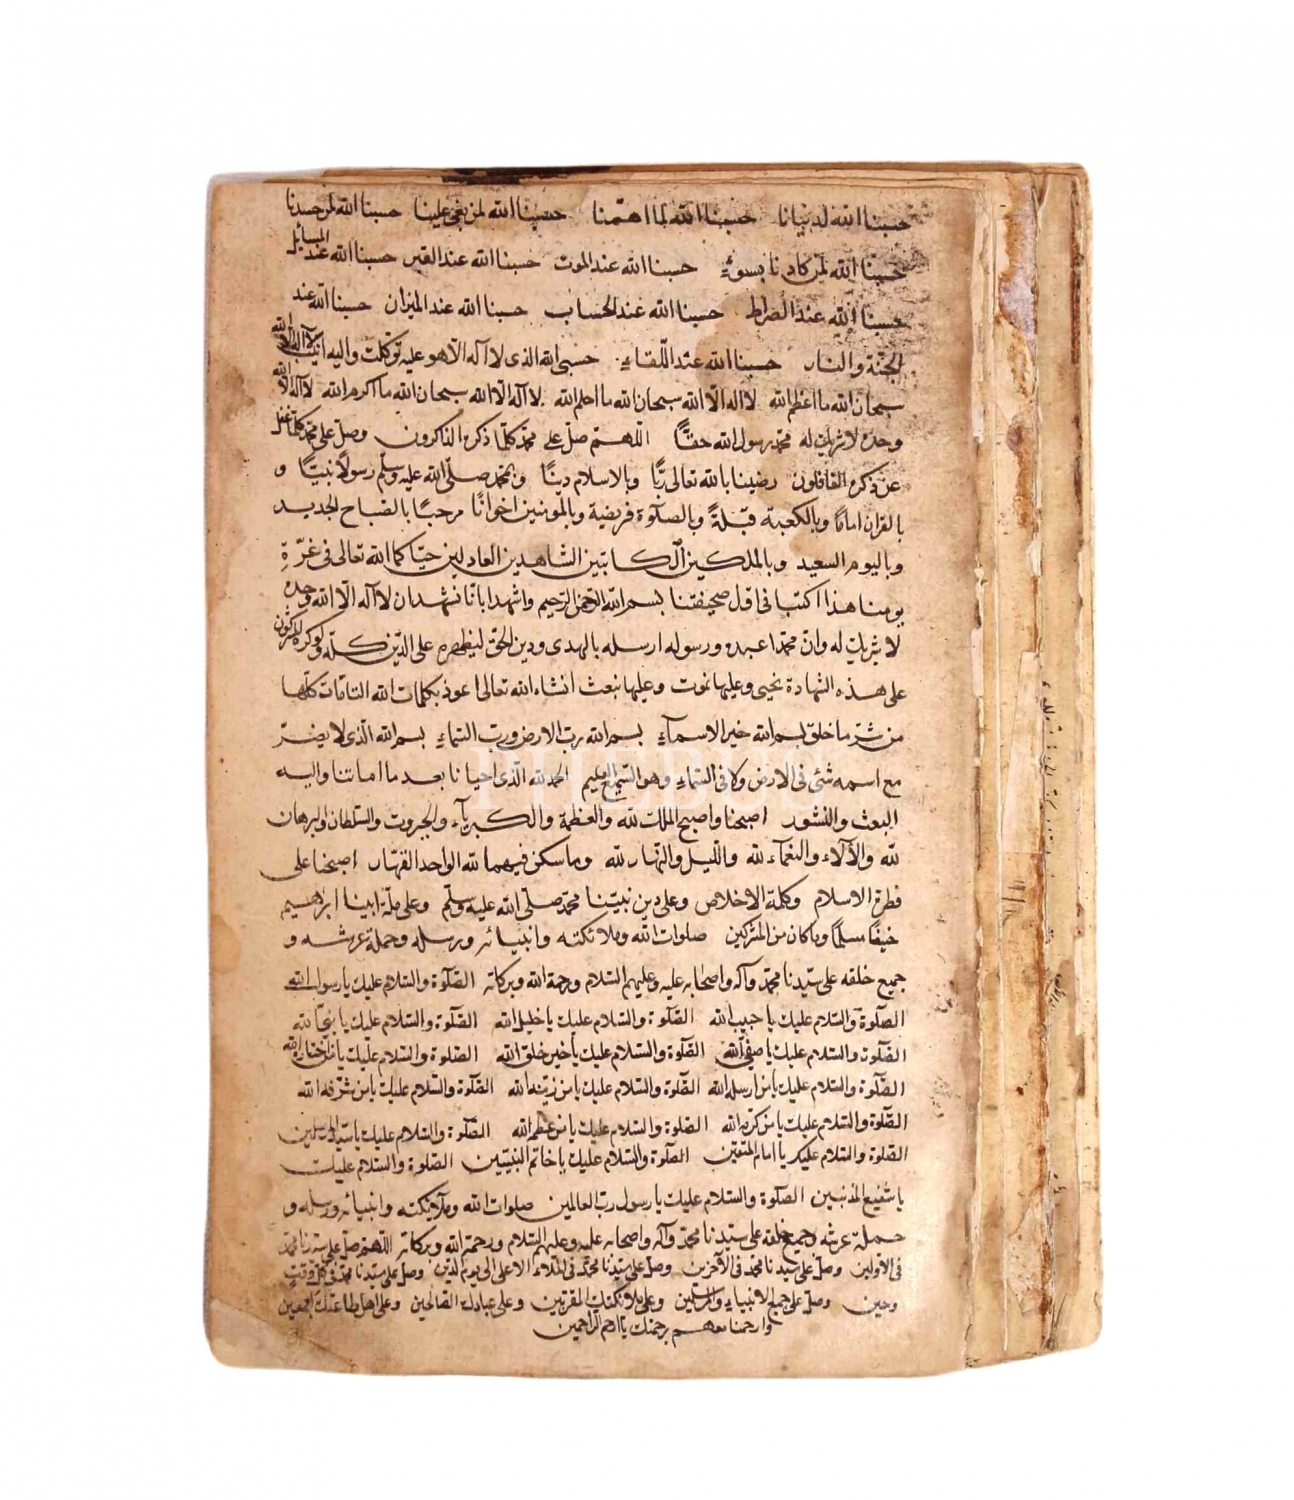 حسبنا الله لدنيانا حسبنا الله لما اهمّنا حسبنا الله لمن بغى علينا حسبنا الله لمن حسدنا
حسبنا الله لمن كادنا بسوءٍ حسبنا الله عند الموت حسبنا الله عند القبر حسبنا الله عند المسائل
حسبنا الله عند الصراط حسبنا الله عند الحساب حسبنا الله عند الميزان حسبنا الله عند
الجنّة والنار حسبنا الله عند اللّقاءِ حسبى الله الذى لا آله الّا هو عليه توكلت واليه انيب لا آله الّا الله
سبحان الله ما اعظم الله لا اله الّا الله سبحان الله ما احلم الله لا آله الّا الله سبحان الله ما اكرم الله لا آله الّا الله
وحده لا شريك له محمّد رسول الله حقّاً اللّهمّ صلّ على محمّد كلّما ذكره الذاكرون وصلّ على محمّد كلّما غفل
عن ذكره الغافلون رضينا بالله تعالى ربًّا وبالاسلام دينًا وبمحمّد صلّى الله عليه وسلّم رسولاً نبيًّا و
بالقران امامًا وبالكعبة قبلةً وبالصلوة فريضة وبالمومنين اخوانًا مرحبًا بالصباح الجديد
وباليوم السعيد وبالملكين الكاتبين الشاهدين العادلين حيّاكما الله تعالى فى غرّةِ
يومنا هذا اكتبا فى اوّل صحيفتنا بسم الله الرّحمن الرّحيم واشهدا بانّا نشهد ان لا آله الّا الله وحده
لا شريك له وانّ محمّدا عبده ورسوله ارسله بالهدى ودين الحقّ ليظهره على الدّين كلّه ولوكره المشركون
على هذه الشهادة نحيى وعليها نموت وعليها نبعث انشاء الله تعالى اعوذ بكلمات الله التامّات كلّها
من شرّ ما خلق بسم الله خير الاسمآءِ بسم الله ربّ الارض وربّ السّماءِ بسم الله الّذى لا يضرّ
مع اسمه شئ فى الارض ولا فى السّماءِ وهو السّميع العليم الحمد لله الّذى احيانا بعد ما اماتنا واليه
البعث والنشور اصبحنا واصبح الملك لله والعظمة والكبريآء والجبروت والسّلطان والبرهان
لله والآلاء والنعمآء لله واللّيل والنّهار لله وما سكن فيهما لله الواحد القهّار اصبحنا على
فطرة الاسلام وكلمة الاخلاص وعلى دين نبيّنا محمّد صلّى الله عليه وسلّم وعلى ملّة ابينا ابراهيم
حنيفًا مسلمًا وماكان من المشركين صلوات الله وملائكته وانبيائه ورسله وحملة عرشه و
جميع خلقه على سيّدنا محمّد وآله واصحابه عليه وعليهم السّلام ورحمة الله وبركاته الصّلوة والسّلام عليك يا رسول الله
الصّلوة والسّلام عليك يا حبيب الله الصّلوة والسّلام عليك يا خليل الله الصّلوة والسّلام عليك يا نبىّ الله
الصّلوة والسّلام عليك يا صفىّ الله الصّلوة والسّلام عليك يا خير خلق الله الصّلوة والسّلام عليك يا من اختاره الله
الصّلوة والسّلام عليك يا من ارسله الله الصّلوة والسّلام عليك يا من زيّنه الله الصّلوة والسّلام عليك يا من شرّفه الله
الصّلوة والسّلام عليك يا من كرّمه الله الصّلوة والسّلام عليك يا من عظّمه الله الصّلوة والسّلام عليك يا سيّد المرسلين
الصّلوة والسّلام عليك يا امام المتّقين الصّلوة والسّلام عليك يا خاتم النبيّين الصّلوة والسّلام عليك
يا شفيع المذنبين الصّلوة والسّلام عليك يا رسول ربّ العالمين صلوات الله وملآئكته وانبيائه ورسله و
حملة عرشه وجميع خلقه على سيّدنا محمّد وآله واصحابه عليه وعليهم السّلام ورحمة الله وبركاته اللّهمّ صلّ على سيّدنا محمّد
فى الاوّلين وصلّ على سيّدنا محمّد فى الآخرين وصلّ على سيّدنا محمّد فى الملاء الاعلى الى يوم الدّين وصلّ على سيّدنا محمّد فى كلّ وقتٍ
وحين وصلّ على جميع الانبياءِ والمرسلين وعلى ملائكتك المقرّبين وعلى عبادك الصّالحين وعلى اهل طاعتك اجمعين
وارحمنا معهم برحمتك يا ارحم الراحمين
PHEBUS